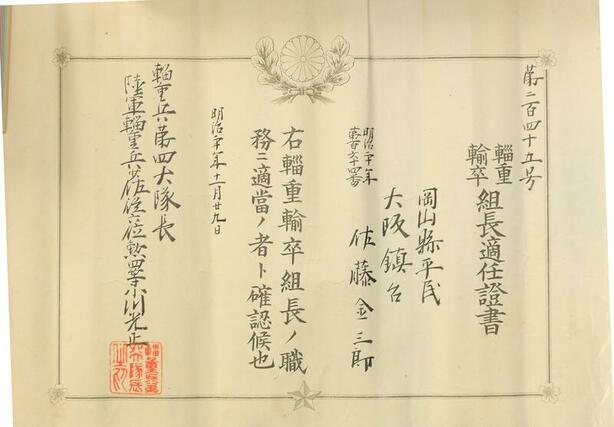 第二百四十五号
輜重
輸卒
組長適任證書
岡山縣平民
大阪鎮台
明治二十年
第百六十四番
佐藤金三郎
右輜重輸卒組長ノ職
務ニ適當ノ者ト確認候也
明治二十年十一月廿九日
輜重兵第四大隊長
陸軍輜重兵少佐従六位勲四等小川光正